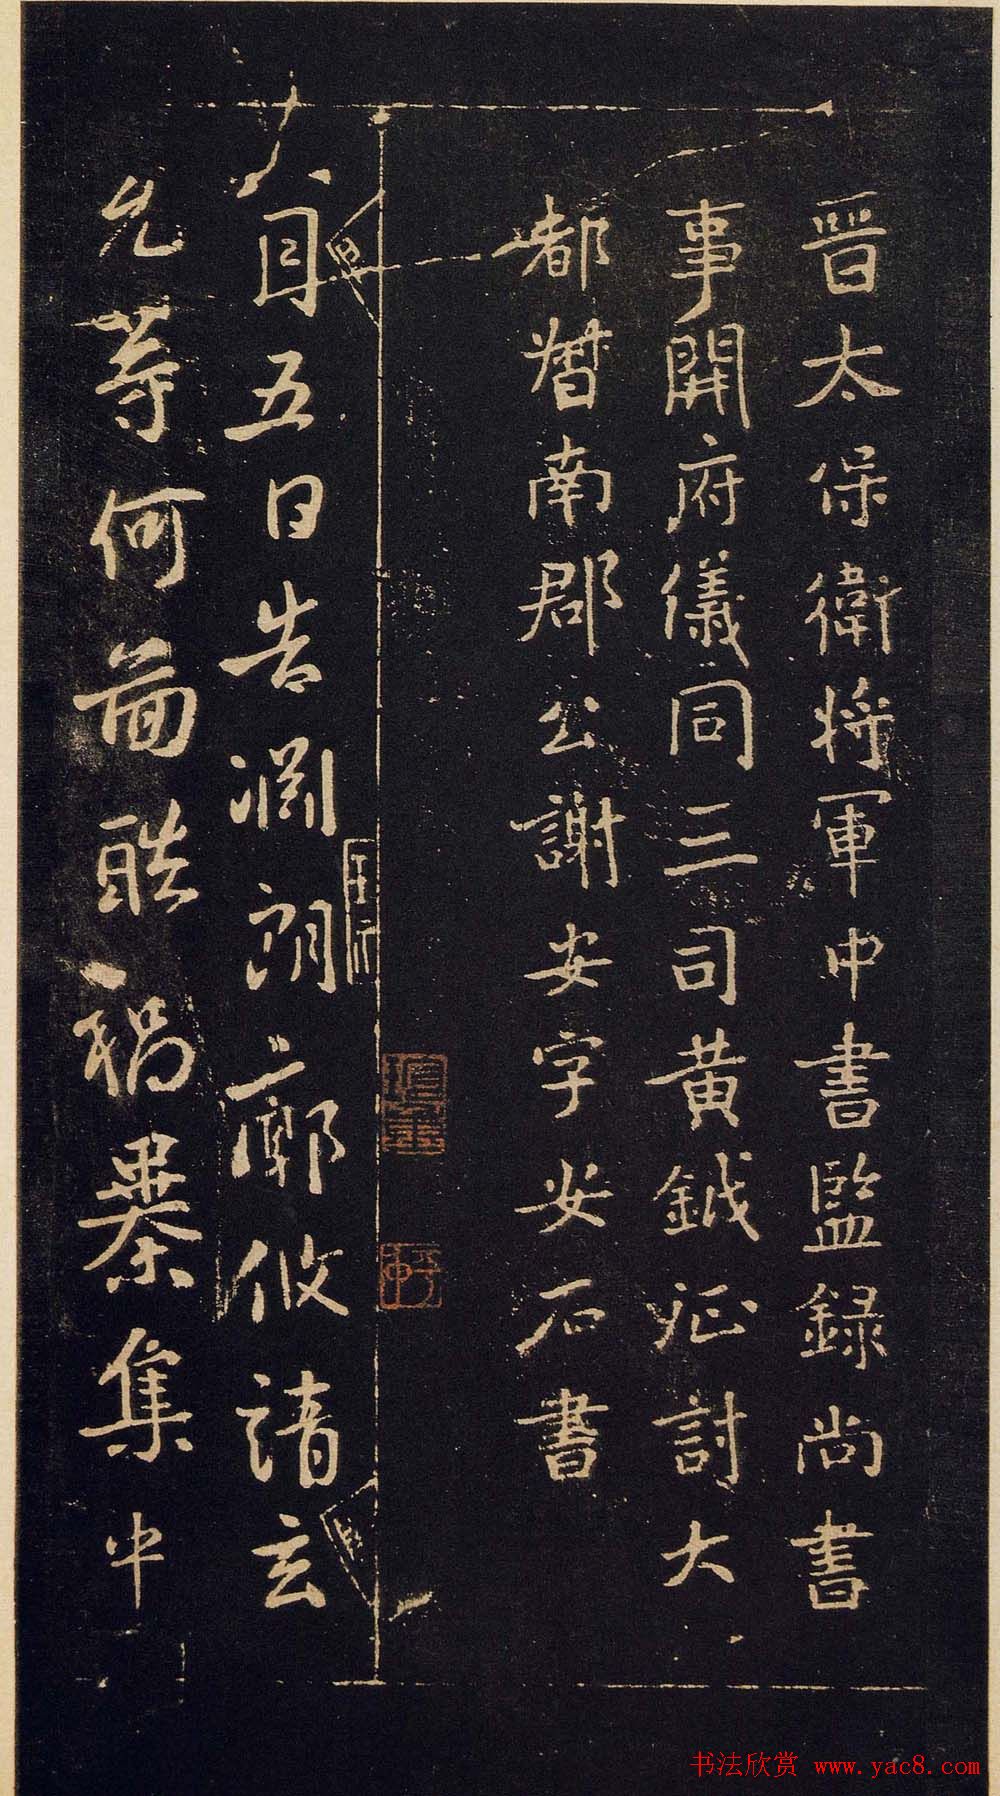 晉太保衛將軍中書監録尚書
事開府儀同三司黃鉞征討大
都督南郡公謝安字安石書
八月五日告淵朗廓攸靖玄
允等何圖酷禍暴集中
书法欣赏 www.yac8.com